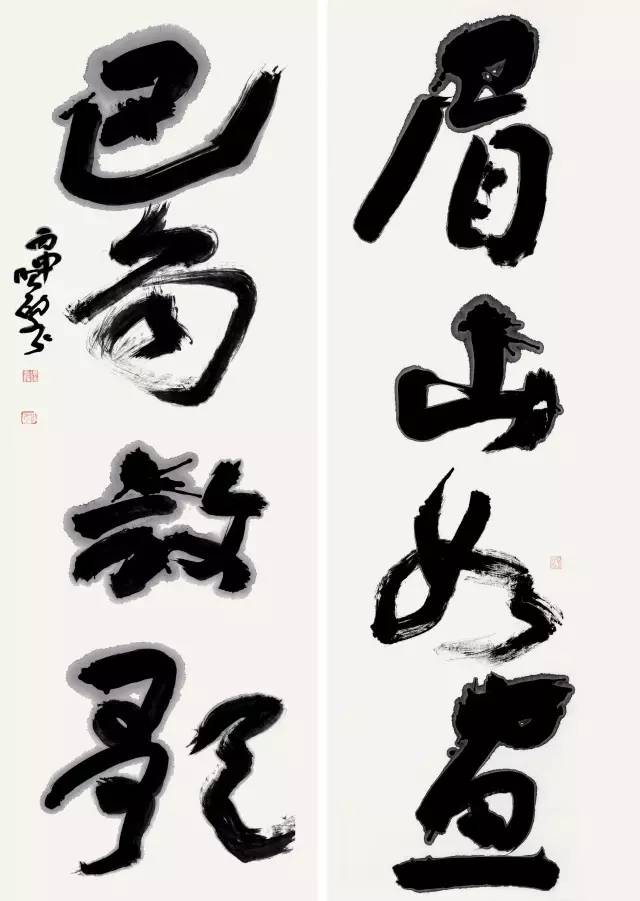 眉山如畫
巴蜀放歌